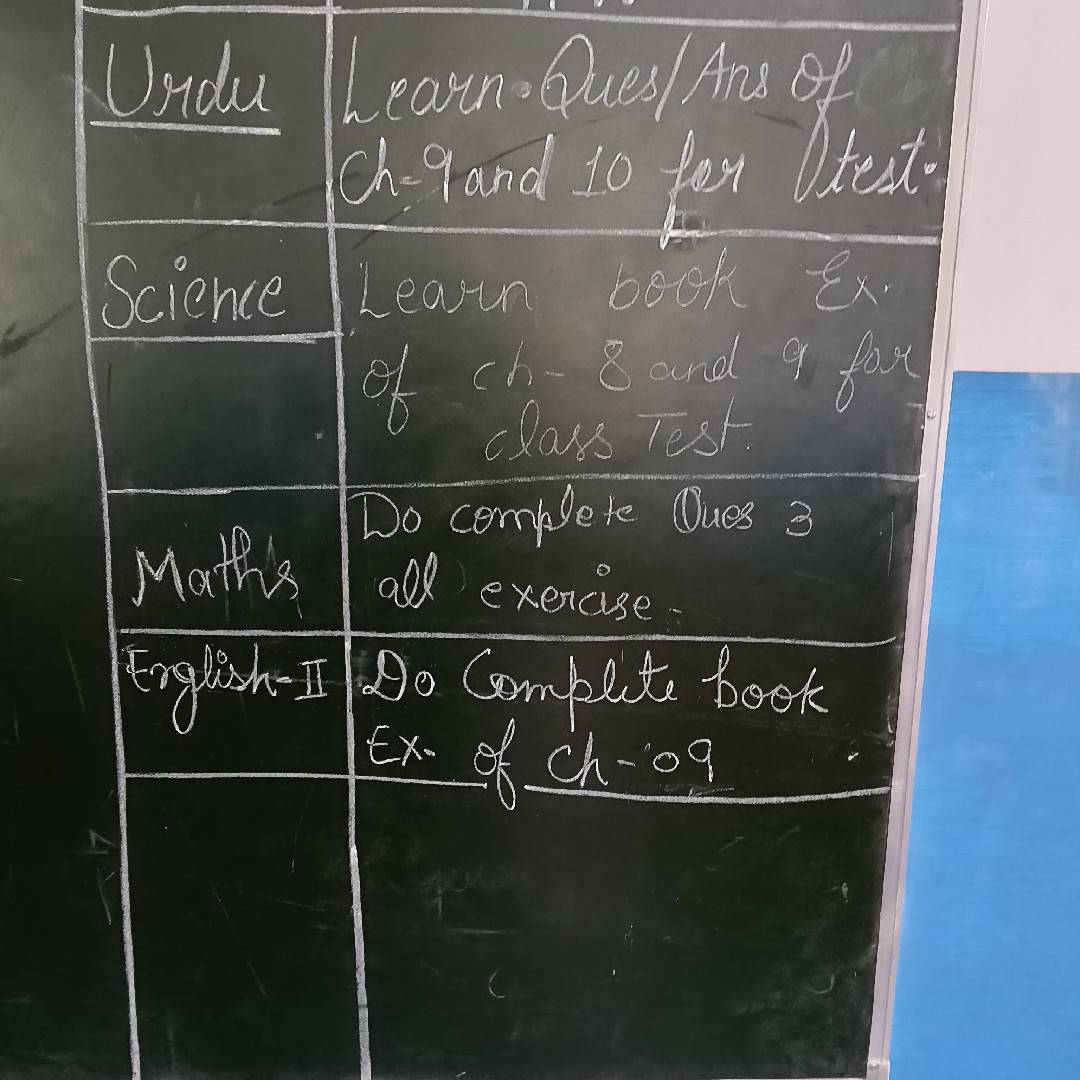 Urdu
Learn Ques/Ans of
Ch-9 and 10 for test.
Science
Learn book Ex.
of ch- 8 and 9 for
class Test.
Maths
Do complete Ques 3
all exercise.
English-II
Do Complete book
Ex- of ch-09